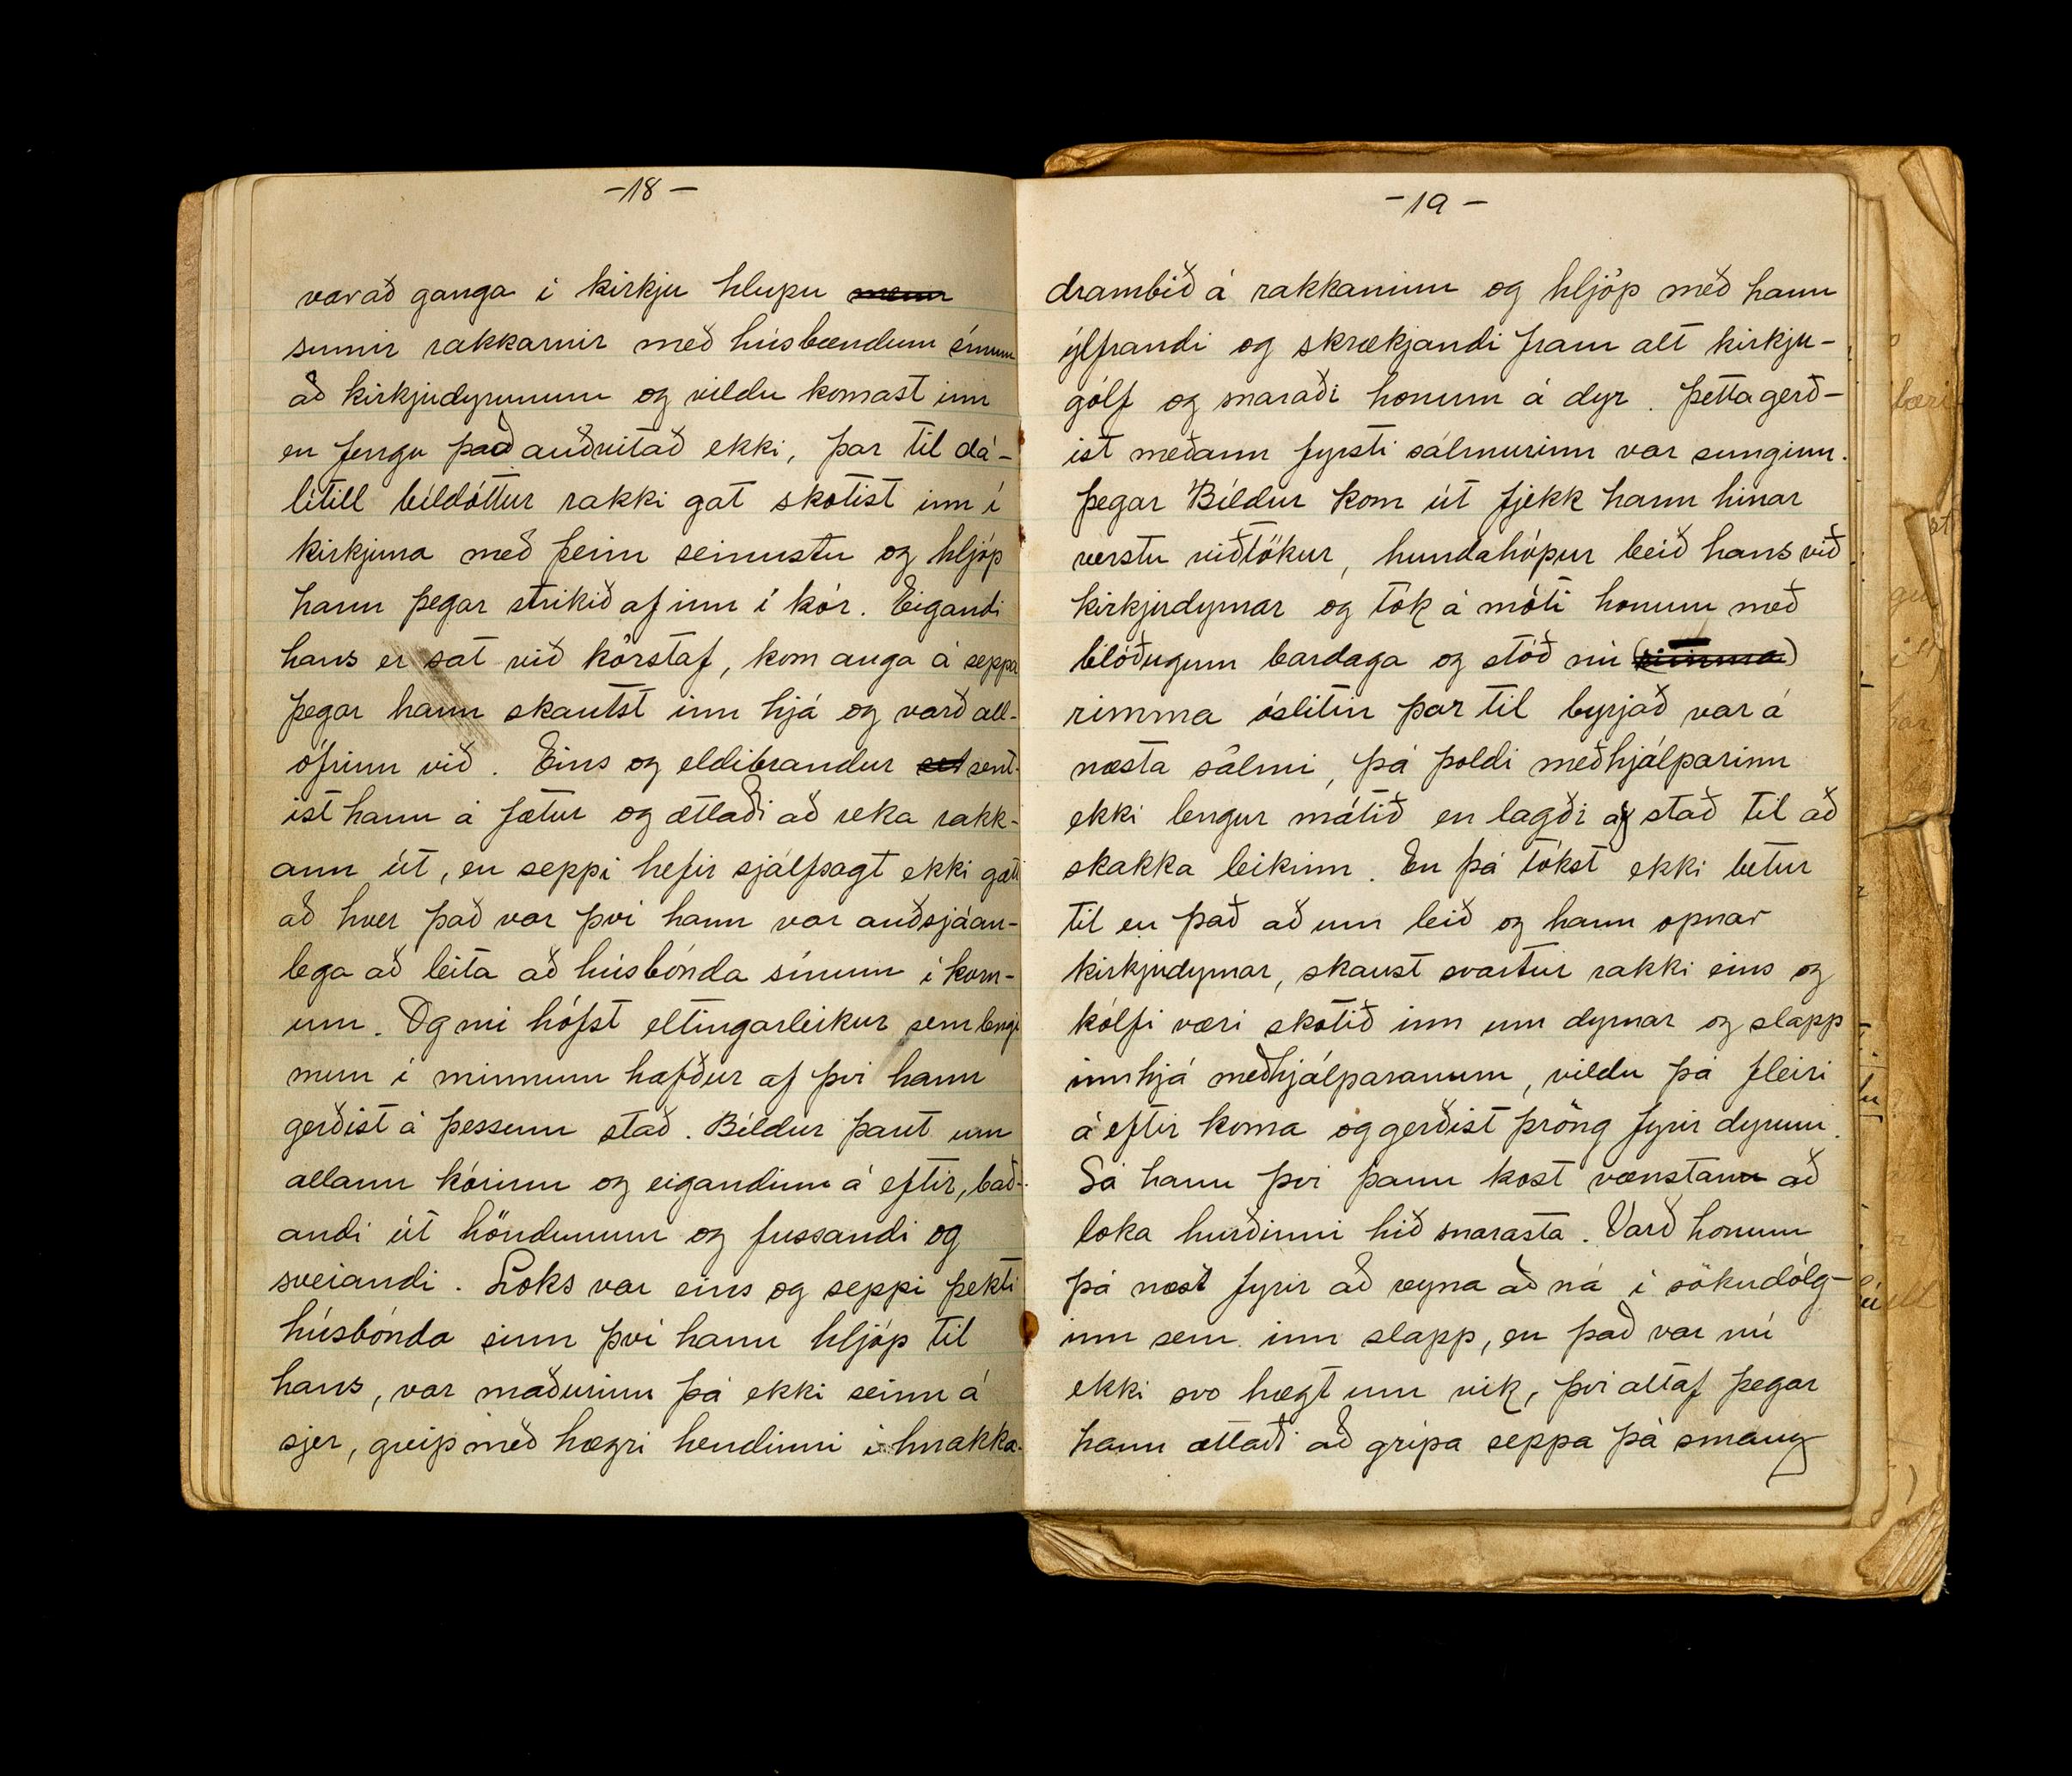 -18-
varað ganga i kirkju hlupu menn
sumir rakkarnir með húsbændum sínum
að kirkjudyrunum og vildu komast inn
en fengu það auðvitað ekki, þar til dá-
lítill bíldóttur rakki gat skotist inn í
kirkjuna með þeim seinustu og hljóp
hann þegar strikið af inn í kór. Eigandi
hans er sat við kórstaf, kom auga á seppa
þegar hann skautst inn hjá og varð all-
ófrinn við. Eins og eldibrandur set sent-
ist hann á fætur og ætlaði að reka rakk-
ann út, en seppi hefir sjálfsagt ekki gætt
að hver það var því hann var auðsjáan-
lega að leita að húsbónda sínum i korn-
um. Og nú hófst eltingarleikur sem lengi
mun i minnum hafður af þvi hann
gerðist á þessum stað. Bíldur þaut um
allann kórinn og eigandinn á eftir, bað-
andi út höndunum og fussandi og
sveiandi. Loks var eins og seppi þekti
húsbónda sinn því hann hljóp til
hans, var maðurinn þá ekki seinn á
sjer, greip með hægri hendinni i hnakka-
-19-
drambið á rakkaninn og hljóp með hann
ýlfrandi og skrækjandi fram alt kirkju-
gólf og snaraði honum á dyr. Þetta gerð-
ist meðann fyrsti sálmurinn var sunginn.
Þegar Bíldur kom út fjekk hann hinar
verstu viðtökur, hundahópur beið hans við
kirkjudyrnar og tók á móti honum með
blóðugum bardaga og stóð nú (rimma)
rimma óslitin þar til byrjað var á
næsta sálmi, þá þoldi meðhjálparinn
ekki lengur mátið en lagði af stað til að
skakka leikinn. En þá tókst ekki betur
til en það að um leið og hann opnar
kirkjudyrnar, skaust svartur rakki eins og
kólfi væri skotið inn um dyrnar og slapp
inn hjá meðhjálparanum, vildu þá fleiri
á eftir koma og gerðist þröng fyrir dyrum.
Sá hann þvi þann kost vænstann að
loka hurðinni hið snarasta. Varð honum
þá næst fyrir að reyna að ná i sökudólg-
inn sem inn slapp, en það var nú
ekki svo hægt um vik, þvi altaf þegar
hann ætlaði að grípa seppa þá smaug